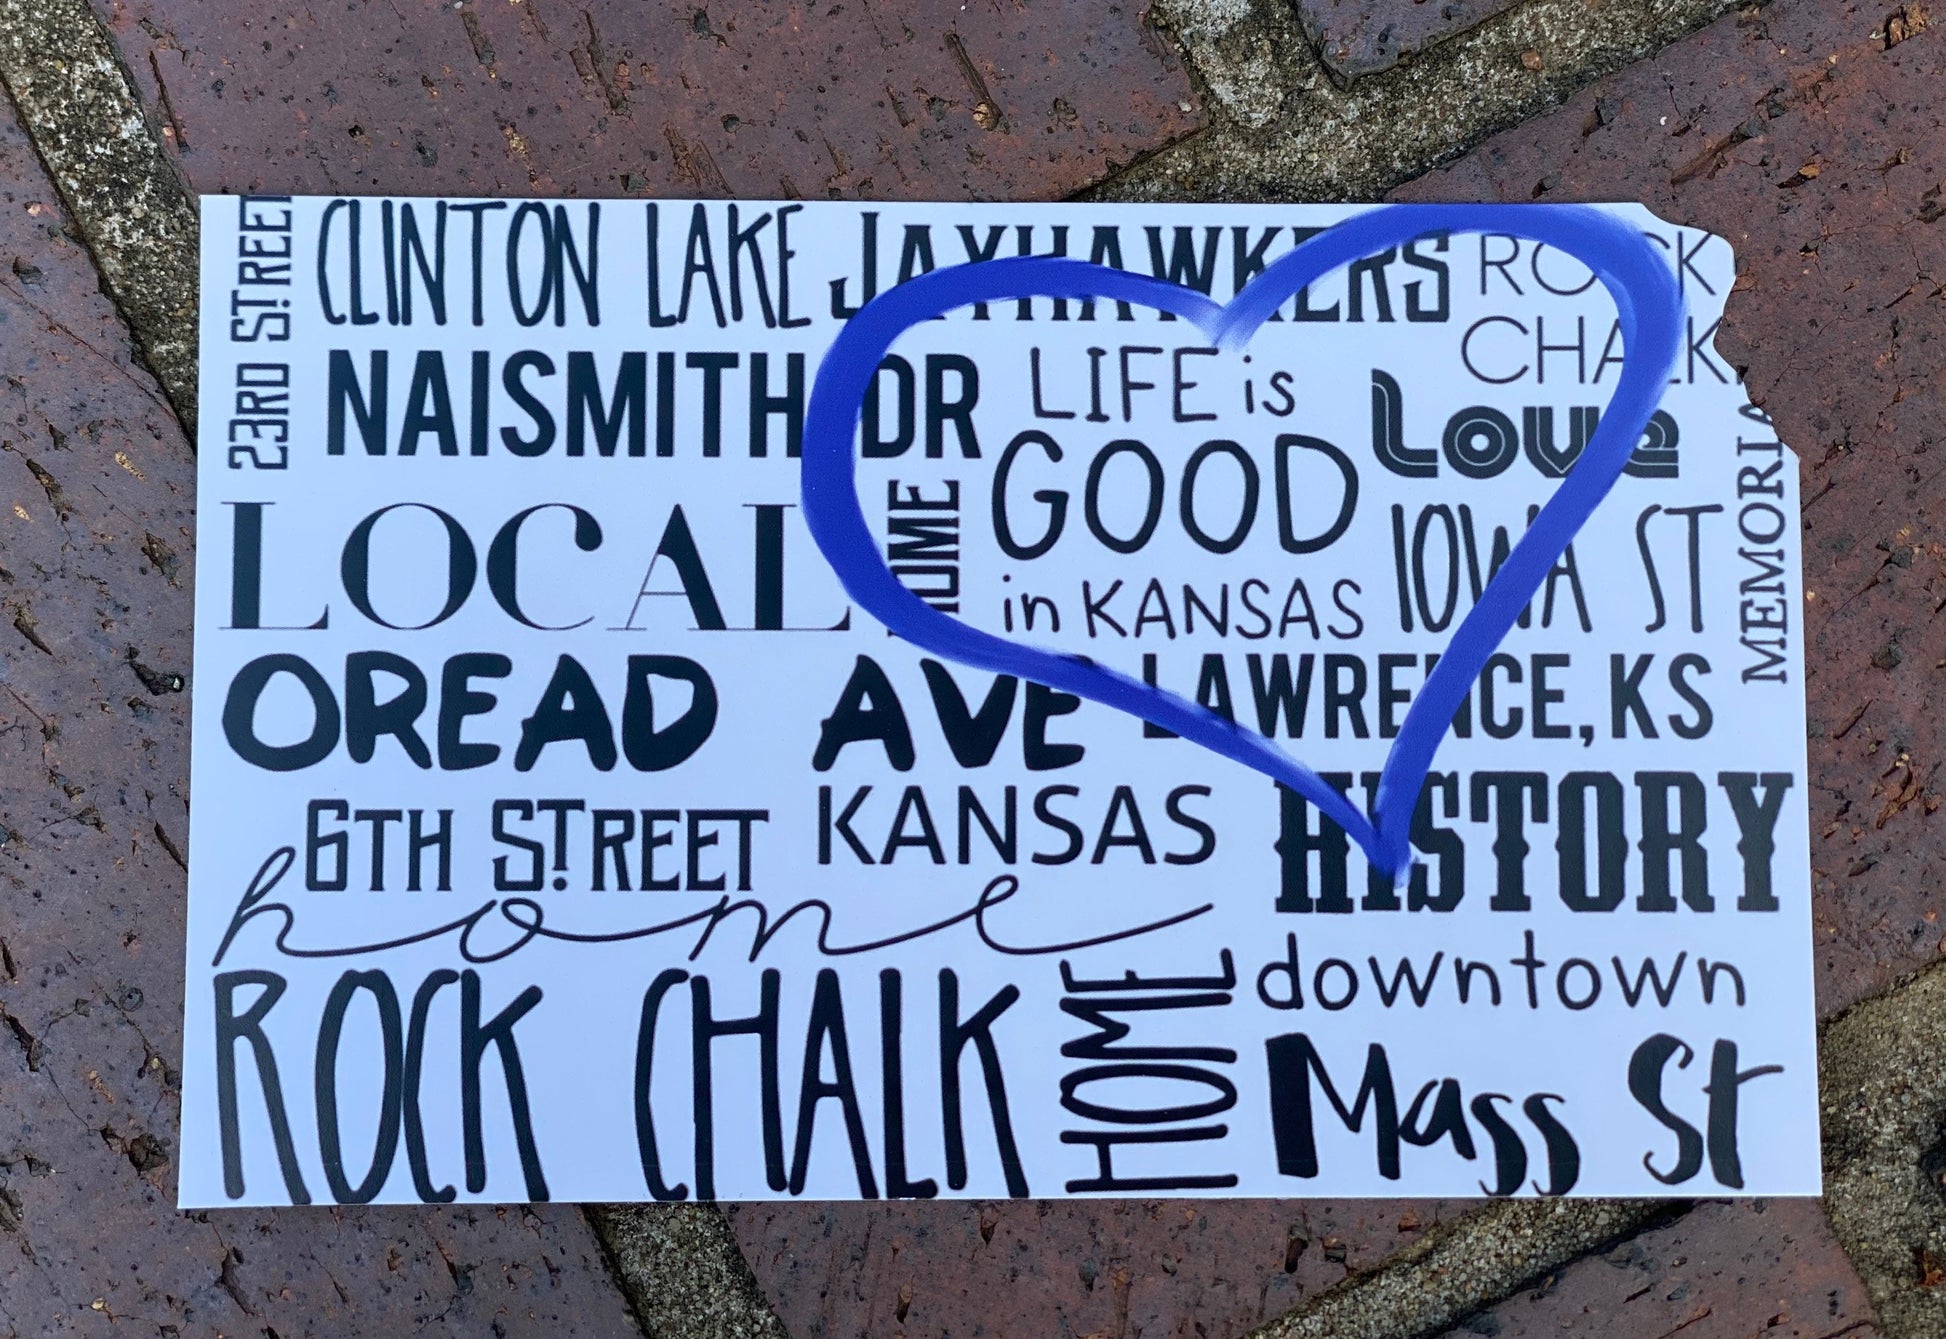 23RD ST. REET
CLINTON LAKE
JAYHAWKERS
ROCK
CHALK
NAISMITH DR
LIFE is
GOOD
in KANSAS
Love
MEMORIA
LOCAL
HOME
IOWA ST
OREAD AVE
LAWRENCE, KS
6TH ST. REET
KANSAS
HISTORY
home
downtown
ROCK CHALK
HOME
Mass St